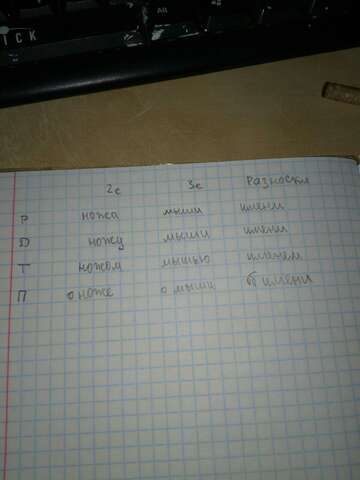 Alt
ICK
2с 3с Разноскл
Р ножа мыши имени
Д ножу мыши имени
Т ножом мышью именем
П о ноже о мыши имени